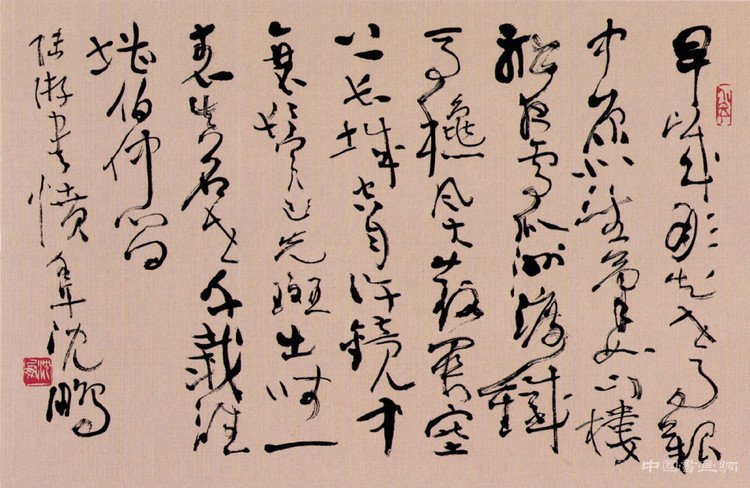 早歲那知世事艱
中原北望氣如山樓
船夜雪瓜洲渡鐵
馬穐風大散關塞
上长城空自许鏡中
衰鬢已先斑出师一
表真名世千载誰
堪伯仲间
陆游书愤 沈鹏
中国書画網